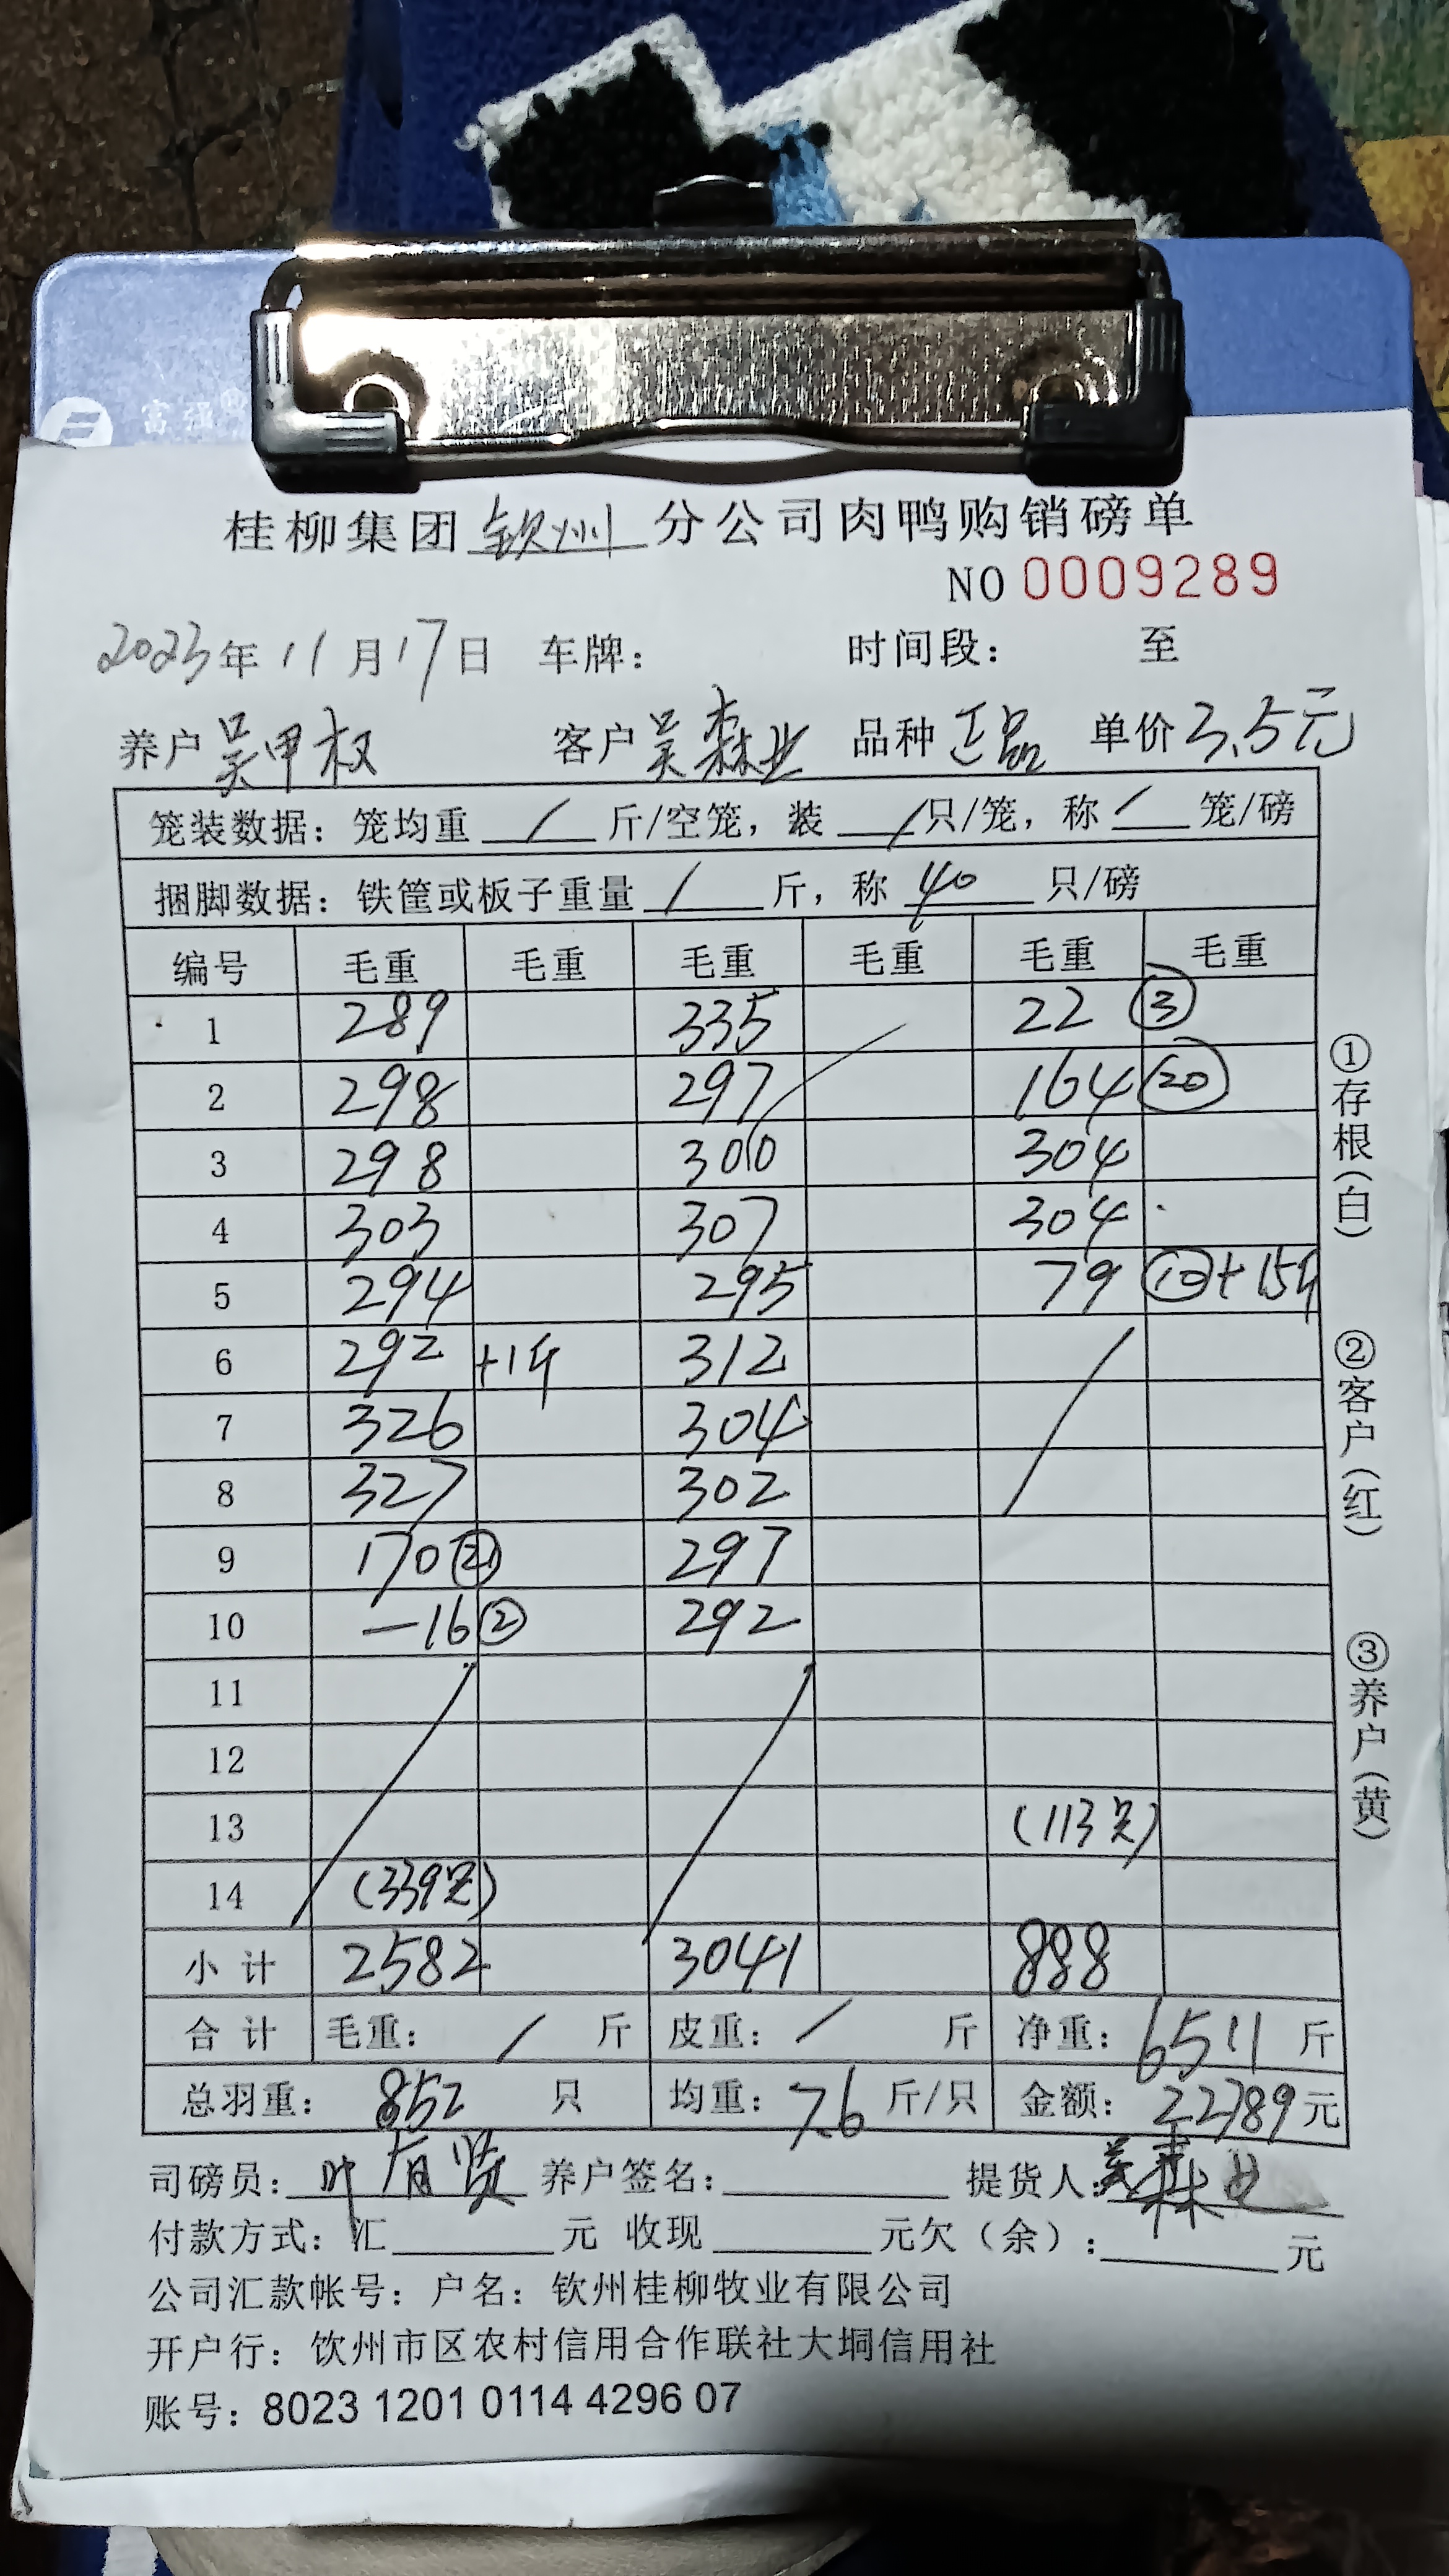 富强®
桂柳集团钦州分公司肉鸭购销磅单
NO 0009289
2023年11月17日 车牌： 时间段： 至
养户 吴甲权 客户 吴森业 品种 正品 单价 3.5元
笼装数据：笼均重 / 斤/空笼，装 / 只/笼，称 / 笼/磅
捆脚数据：铁筐或板子重量 / 斤，称 40 只/磅
编号 毛重 毛重 毛重 毛重 毛重 毛重
1 289 335 22 ③
2 298 297 164 ⑳
3 298 300 304
4 303 307 304
5 294 295 79 ⑩+15斤
6 292 +1斤 312
7 326 304
8 327 302
9 170 ㉑ 297
10 -16 ② 292
11
12
13 (113只)
14 (339只)
小计 2582 3041 888
合计 毛重： / 斤 皮重： / 斤 净重：6511 斤
总羽重： 852 只 均重：7.6 斤/只 金额：22789元
司磅员：叶有贤 养户签名： 提货人：吴森业
付款方式：汇 元 收现 元欠（余）： 元
公司汇款帐号：户名：钦州桂柳牧业有限公司
开户行：饮州市区农村信用合作联社大垌信用社
账号：8023 1201 0114 4296 07
①存根（白）
②客户（红）
③养户（黄）